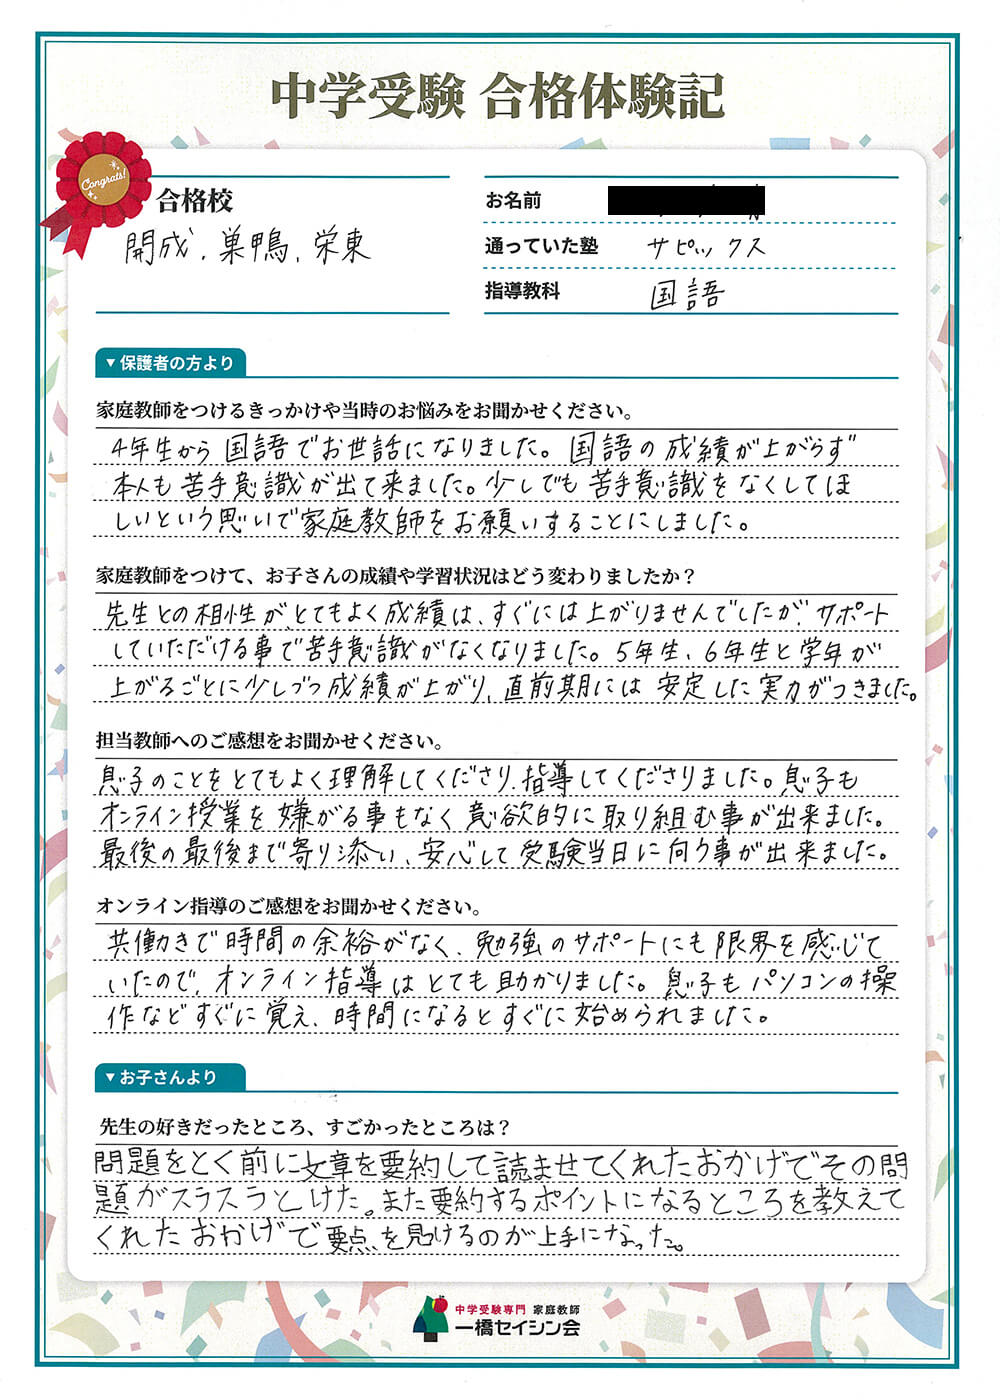 中学受験 合格体験記
Congrats!
合格校
開成、巣鴨、栄東
お名前
通っていた塾 サピックス
指導教科 国語
▼保護者の方より
家庭教師をつけるきっかけや当時のお悩みをお聞かせください。
4年生から国語でお世話になりました。国語の成績が上がらず
本人も苦手意識が出て来ました。少しでも苦手意識をなくしてほ
しいという思いで家庭教師をお願いすることにしました。
家庭教師をつけて、お子さんの成績や学習状況はどう変わりましたか？
先生との相性が、とてもよく成績は、すぐには上がりませんでしたが、サポート
していただける事で苦手意識がなくなりました。5年生、6年生と学年が
上がるごとに少しづつ成績が上がり、直前期には安定した実力がつきました。
担当教師へのご感想をお聞かせください。
息子のことをとてもよく理解してくださり、指導してくださりました。息子も
オンライン授業を嫌がる事もなく意欲的に取り組む事が出来ました。
最後の最後まで寄り添い、安心して受験当日に向う事が出来ました。
オンライン指導のご感想をお聞かせください。
共働きで時間の余裕がなく、勉強のサポートにも限界を感じて
いたので、オンライン指導はとても助かりました。息子もパソコンの操
作などすぐに覚え、時間になるとすぐに始められました。
▼お子さんより
先生の好きだったところ、すごかったところは？
問題をとく前に文章を要約して読ませてくれたおかげでその問
題がスラスラとけた。また要約するポイントになるところを教えて
くれたおかげで要点を見けるのが上手になった。
中学受験専門 家庭教師
一橋セイシン会